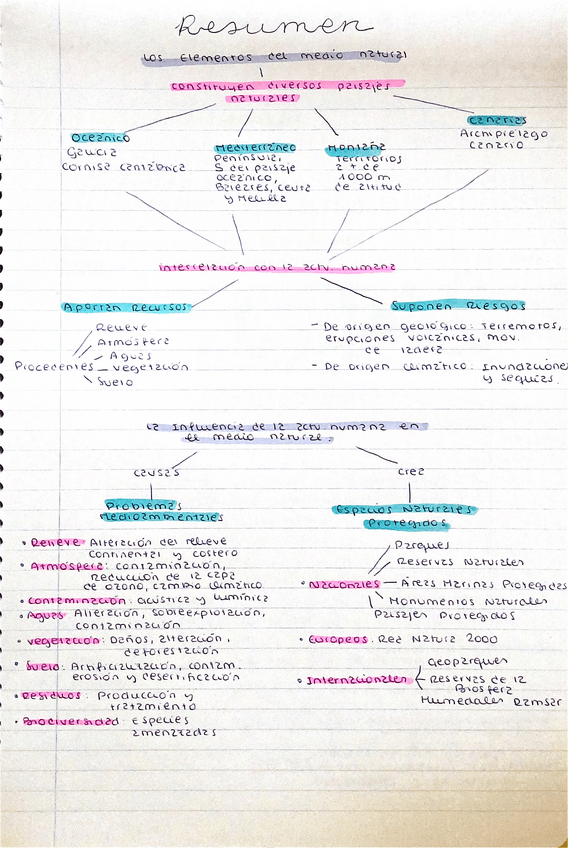 Resumen
Los Elementos del medio natural
constituyen diversos paisajes
naturales
Oceánico
Galicia
Cornisa cantábrica
Mediterráneo
Península,
S del paisaje
oceánico,
Baleares, Ceuta
y Melilla
Montaña
Territorios
a + de
1000 m
de altitud
Canarias
Archipiélago
canario
interrelación con la actv. humana
Aportan Recursos
Procedentes
Relieve
Atmósfera
Aguas
vegetación
Suelo
Suponen Riesgos
- De origen geológico: Terremotos,
erupciones volcánicas, mov.
de ladera
- De origen climático: Inundaciones
y sequías.
La Influencia de la actv. humana en
el medio natural.
causas
Problemas
Medioambientales
• Relieve: Alteración del relieve
continental y costero
• Atmósfera: contaminación,
reducción de la capa
de ozono, cambio climático
• Contaminación: acústica y lumínica
• Aguas: Alteración, sobreexplotación,
contaminación
• vegetación: Daños, alteración,
deforestación
• Suelo: Artificialización, contam.
erosión y desertificación
• Residuos: Producción y
tratamiento
• Biodiversidad: Especies
amenazadas
crea
Espacios Naturales
Protegidos
• Nacionales
Parques
Reservas Naturales
Áreas Marinas Protegidas
Monumentos Naturales
Paisajes Protegidos
• Europeos: Red Natura 2000
• Internacionales
Geoparques
Reservas de la
Biosfera
Humedales Ramsar